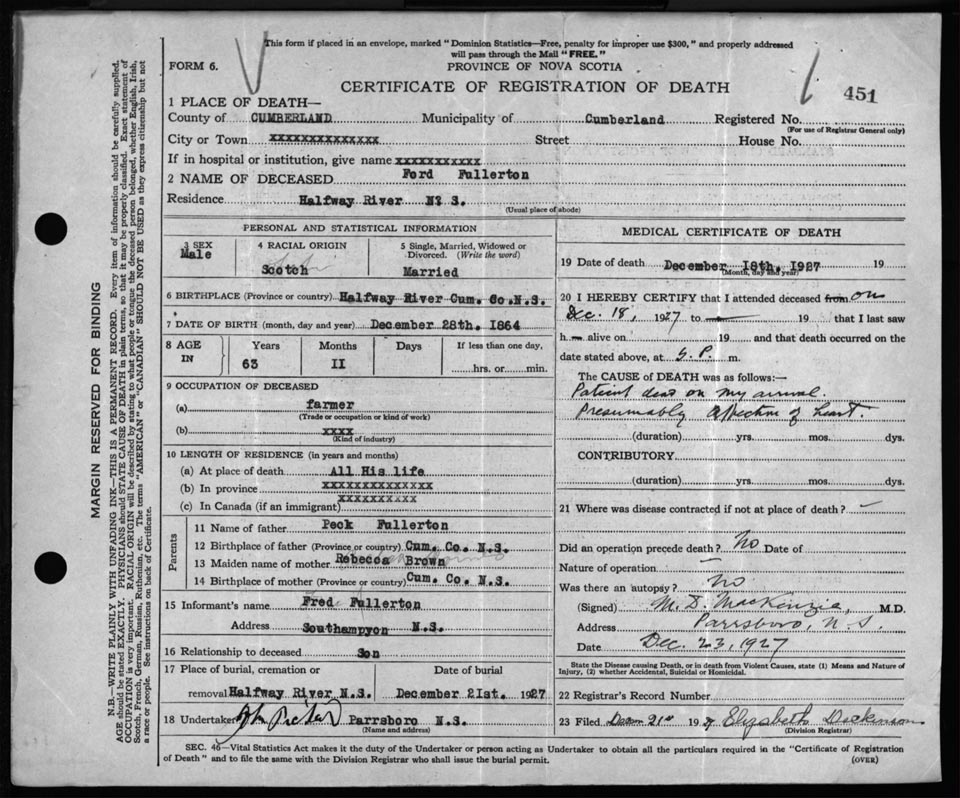 This form if placed in an envelope, marked "Dominion Statistics—Free, penalty for improper use $300," and properly addressed
will pass through the Mail "FREE."
FORM 6. PROVINCE OF NOVA SCOTIA
CERTIFICATE OF REGISTRATION OF DEATH
451
1 PLACE OF DEATH—
County of CUMBERLAND Municipality of Cumberland Registered No.
(For use of Registrar General only)
City or Town xxxxxxxxxxxxxx Street House No.
If in hospital or institution, give name xxxxxxxxxxx
2 NAME OF DECEASED Ford Fullerton
Residence Halfway River N: S.
(Usual place of abode)
PERSONAL AND STATISTICAL INFORMATION
3 SEX 4 RACIAL ORIGIN 5 Single, Married, Widowed or
Divorced. (Write the word)
Male Scotch Married
6 BIRTHPLACE (Province or country) Halfway River Cum. Co. N.S.
7 DATE OF BIRTH (month, day and year) December 28th. 1864
8 AGE IN Years Months Days If less than one day,
63 II hrs. or min.
9 OCCUPATION OF DECEASED
(a) farmer
(Trade or occupation or kind of work)
(b) xxxx
(Kind of industry)
10 LENGTH OF RESIDENCE (in years and months)
(a) At place of death All His life
(b) In province xxxxxxxxxxxxxx
(c) In Canada (if an immigrant) xxxxxxxxxx
Parents
11 Name of father Peck Fullerton
12 Birthplace of father (Province or country) Cum. Co. N.S.
13 Maiden name of mother Rebecca Brown
14 Birthplace of mother (Province or country) Cum. Co. N.S.
15 Informant's name Fred Fullerton
Address Southampyon N.S.
16 Relationship to deceased Son
17 Place of burial, cremation or Date of burial
removal Halfway River N.S. December 21st. 1927
18 Undertaker Parrsboro N.S.
(Name and address)
MEDICAL CERTIFICATE OF DEATH
19 Date of death December 18th. 1927 19
(Month, day and year)
20 I HEREBY CERTIFY that I attended deceased from on
Dec. 18, 1927 to 19 that I last saw
h alive on 19 and that death occurred on the
date stated above, at P. m.
The CAUSE OF DEATH was as follows:—
Patient dead on my arrival.
Presumably affection of heart.
(duration) yrs. mos. dys.
CONTRIBUTORY
(duration) yrs. mos. dys.
21 Where was disease contracted if not at place of death? —
Did an operation precede death? No Date of
Nature of operation —
Was there an autopsy? No
(Signed) M. D. MacKenzie, M.D.
Address Parrsboro, N.S.
Date Dec. 23, 1927
State the Disease causing Death, or in death from Violent Causes, state (1) Means and Nature of
Injury, (2) whether Accidental, Suicidal or Homicidal.
22 Registrar's Record Number
23 Filed 21st 192 Elizabeth Dickinson
(Division Registrar)
SEC. 46—Vital Statistics Act makes it the duty of the Undertaker or person acting as Undertaker to obtain all the particulars required in the "Certificate of Registration
of Death" and to file the same with the Division Registrar who shall issue the burial permit.
(OVER)
MARGIN RESERVED FOR BINDING
N.B.—WRITE PLAINLY WITH UNFADING INK—THIS IS A PERMANENT RECORD. Every item of information should be carefully supplied.
AGE should be stated EXACTLY. PHYSICIANS should STATE CAUSE OF DEATH in plain terms, so that it may be properly classified. Exact statement of
OCCUPATION is very important. RACIAL ORIGIN will be described by stating to what people or tongue the deceased person belonged, whether English, Irish,
Scotch, French, German, Russian, Ruthenian, etc. The terms "AMERICAN" or "CANADIAN" SHOULD NOT BE USED as they express citizenship but not
a race or people. See instructions on back of Certificate.